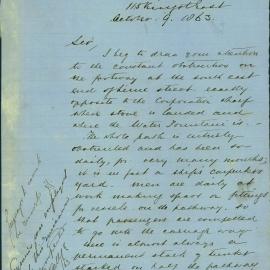 115 King Street
October 9. 1863.
Sir,
I beg to draw your attention
to the constant obstruction on
the footway at the south east
end of Lime Street exactly
opposite to the Corporation Wharf
where stone is landed and
where the Water Fountain is. -
The whole path is entirely
obstructed and has been so
daily, for very many months;
it is in fact a ships carpenters
yard. men are daily at
work making spars or fittings
for vessels on the pathway. so
that passengers are compelled
to go into the carriage way
There is almost always a
permanent stack of timber
stacked on half the pathway